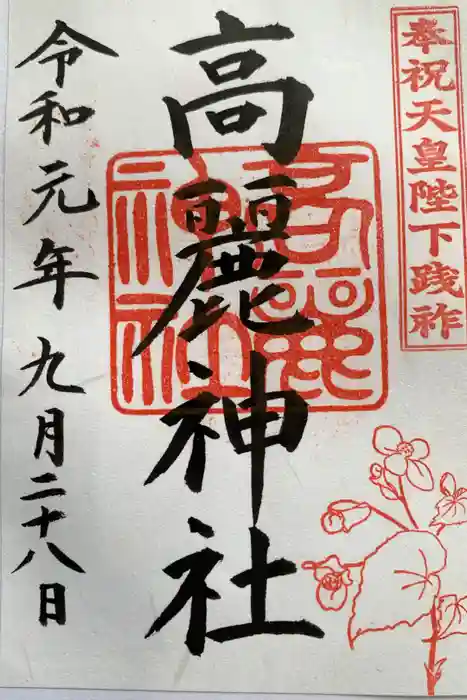 奉祝天皇陛下践祚
高麗神社
高麗神社
令和元年九月二十八日